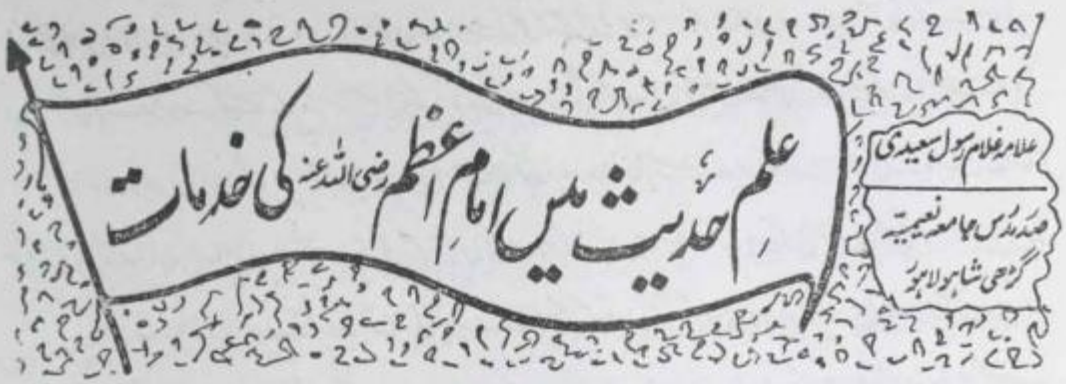 علمِ حدیث میں امامِ اعظم رضی اللہ عنہ کی خدمات
علامہ غلام رسول سعیدی
صدر مدرس جامعہ نعیمیہ
گڑھی شاہو لاہور